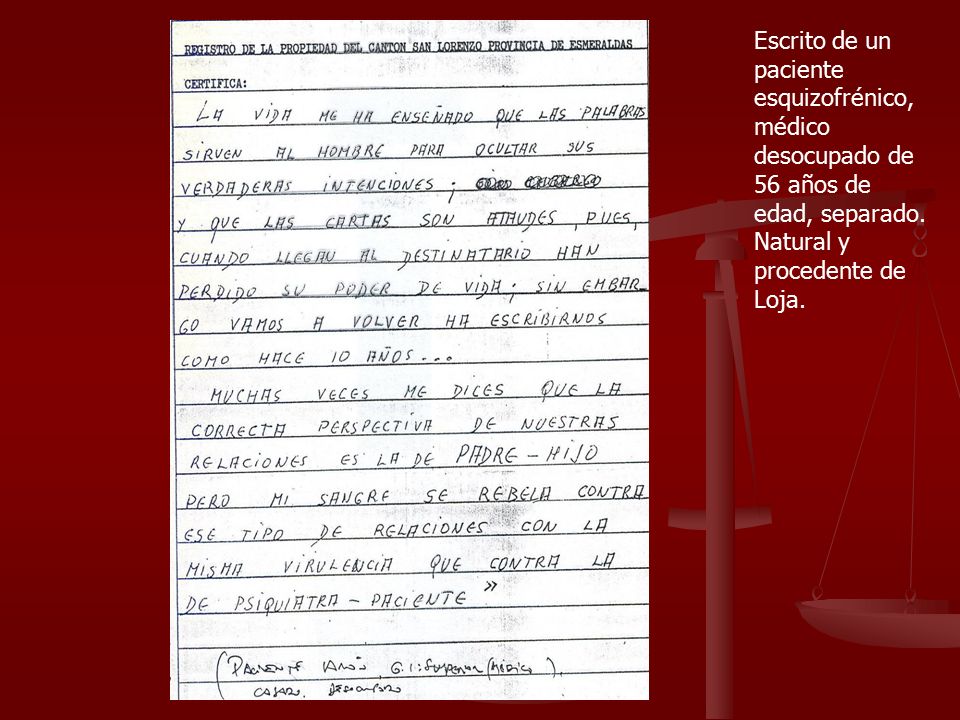 REGISTRO DE LA PROPIEDAD DEL CANTON SAN LORENZO PROVINCIA DE ESMERALDAS
CERTIFICA:
LA VIDA ME HA ENSEÑADO QUE LAS PALABRAS
SIRVEN AL HOMBRE PARA OCULTAR SUS
VERDADERAS INTENCIONES;
Y QUE LAS CARTAS SON ATAUDES, PUES,
CUANDO LLEGAN AL DESTINATARIO HAN
PERDIDO SU PODER DE VIDA; SIN EMBAR_
GO VAMOS A VOLVER HA ESCRIBIRNOS
COMO HACE 10 AÑOS...
MUCHAS VECES ME DICES QUE LA
CORRECTA PERSPECTIVA DE NUESTRAS
RELACIONES ES LA DE PADRE-HIJO
PERO MI SANGRE SE REBELA CONTRA
ESE TIPO DE RELACIONES CON LA
MISMA VIRULENCIA QUE CONTRA LA
DE PSIQUIATRA-PACIENTE"
(PACIENTE G.I: SUPERIOR (MÉDICO),
Escrito de un
paciente
esquizofrénico,
médico
desocupado de
56 años de
edad, separado.
Natural y
procedente de
Loja.